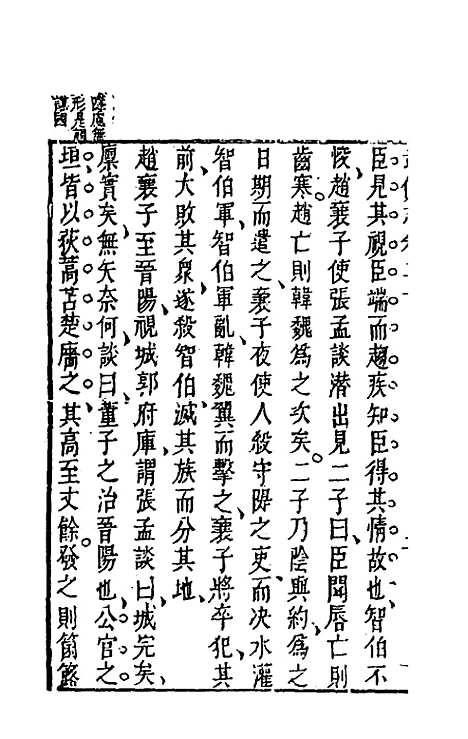 臣見其視臣端而趨疾知臣得其情故也智伯不
悛趙襄子使張孟談潛出見二子曰臣聞唇亡則
齒寒趙亡則韓魏為之次矣二子乃陰與約為之
日期而遣之襄子夜使人殺守隄之吏而決水灌
智伯軍智伯軍亂韓魏翼而擊之襄子將卒犯其
前大敗其衆遂殺智伯滅其族而分其地
趙襄子至晉陽視城郭府庫謂張孟談曰城完矣
廪實矣無矢奈何談曰董子之治晉陽也公宮之
垣皆以荻蒿苫楚廧之其高至丈餘發之則箘簬
慮無
形是
謀國